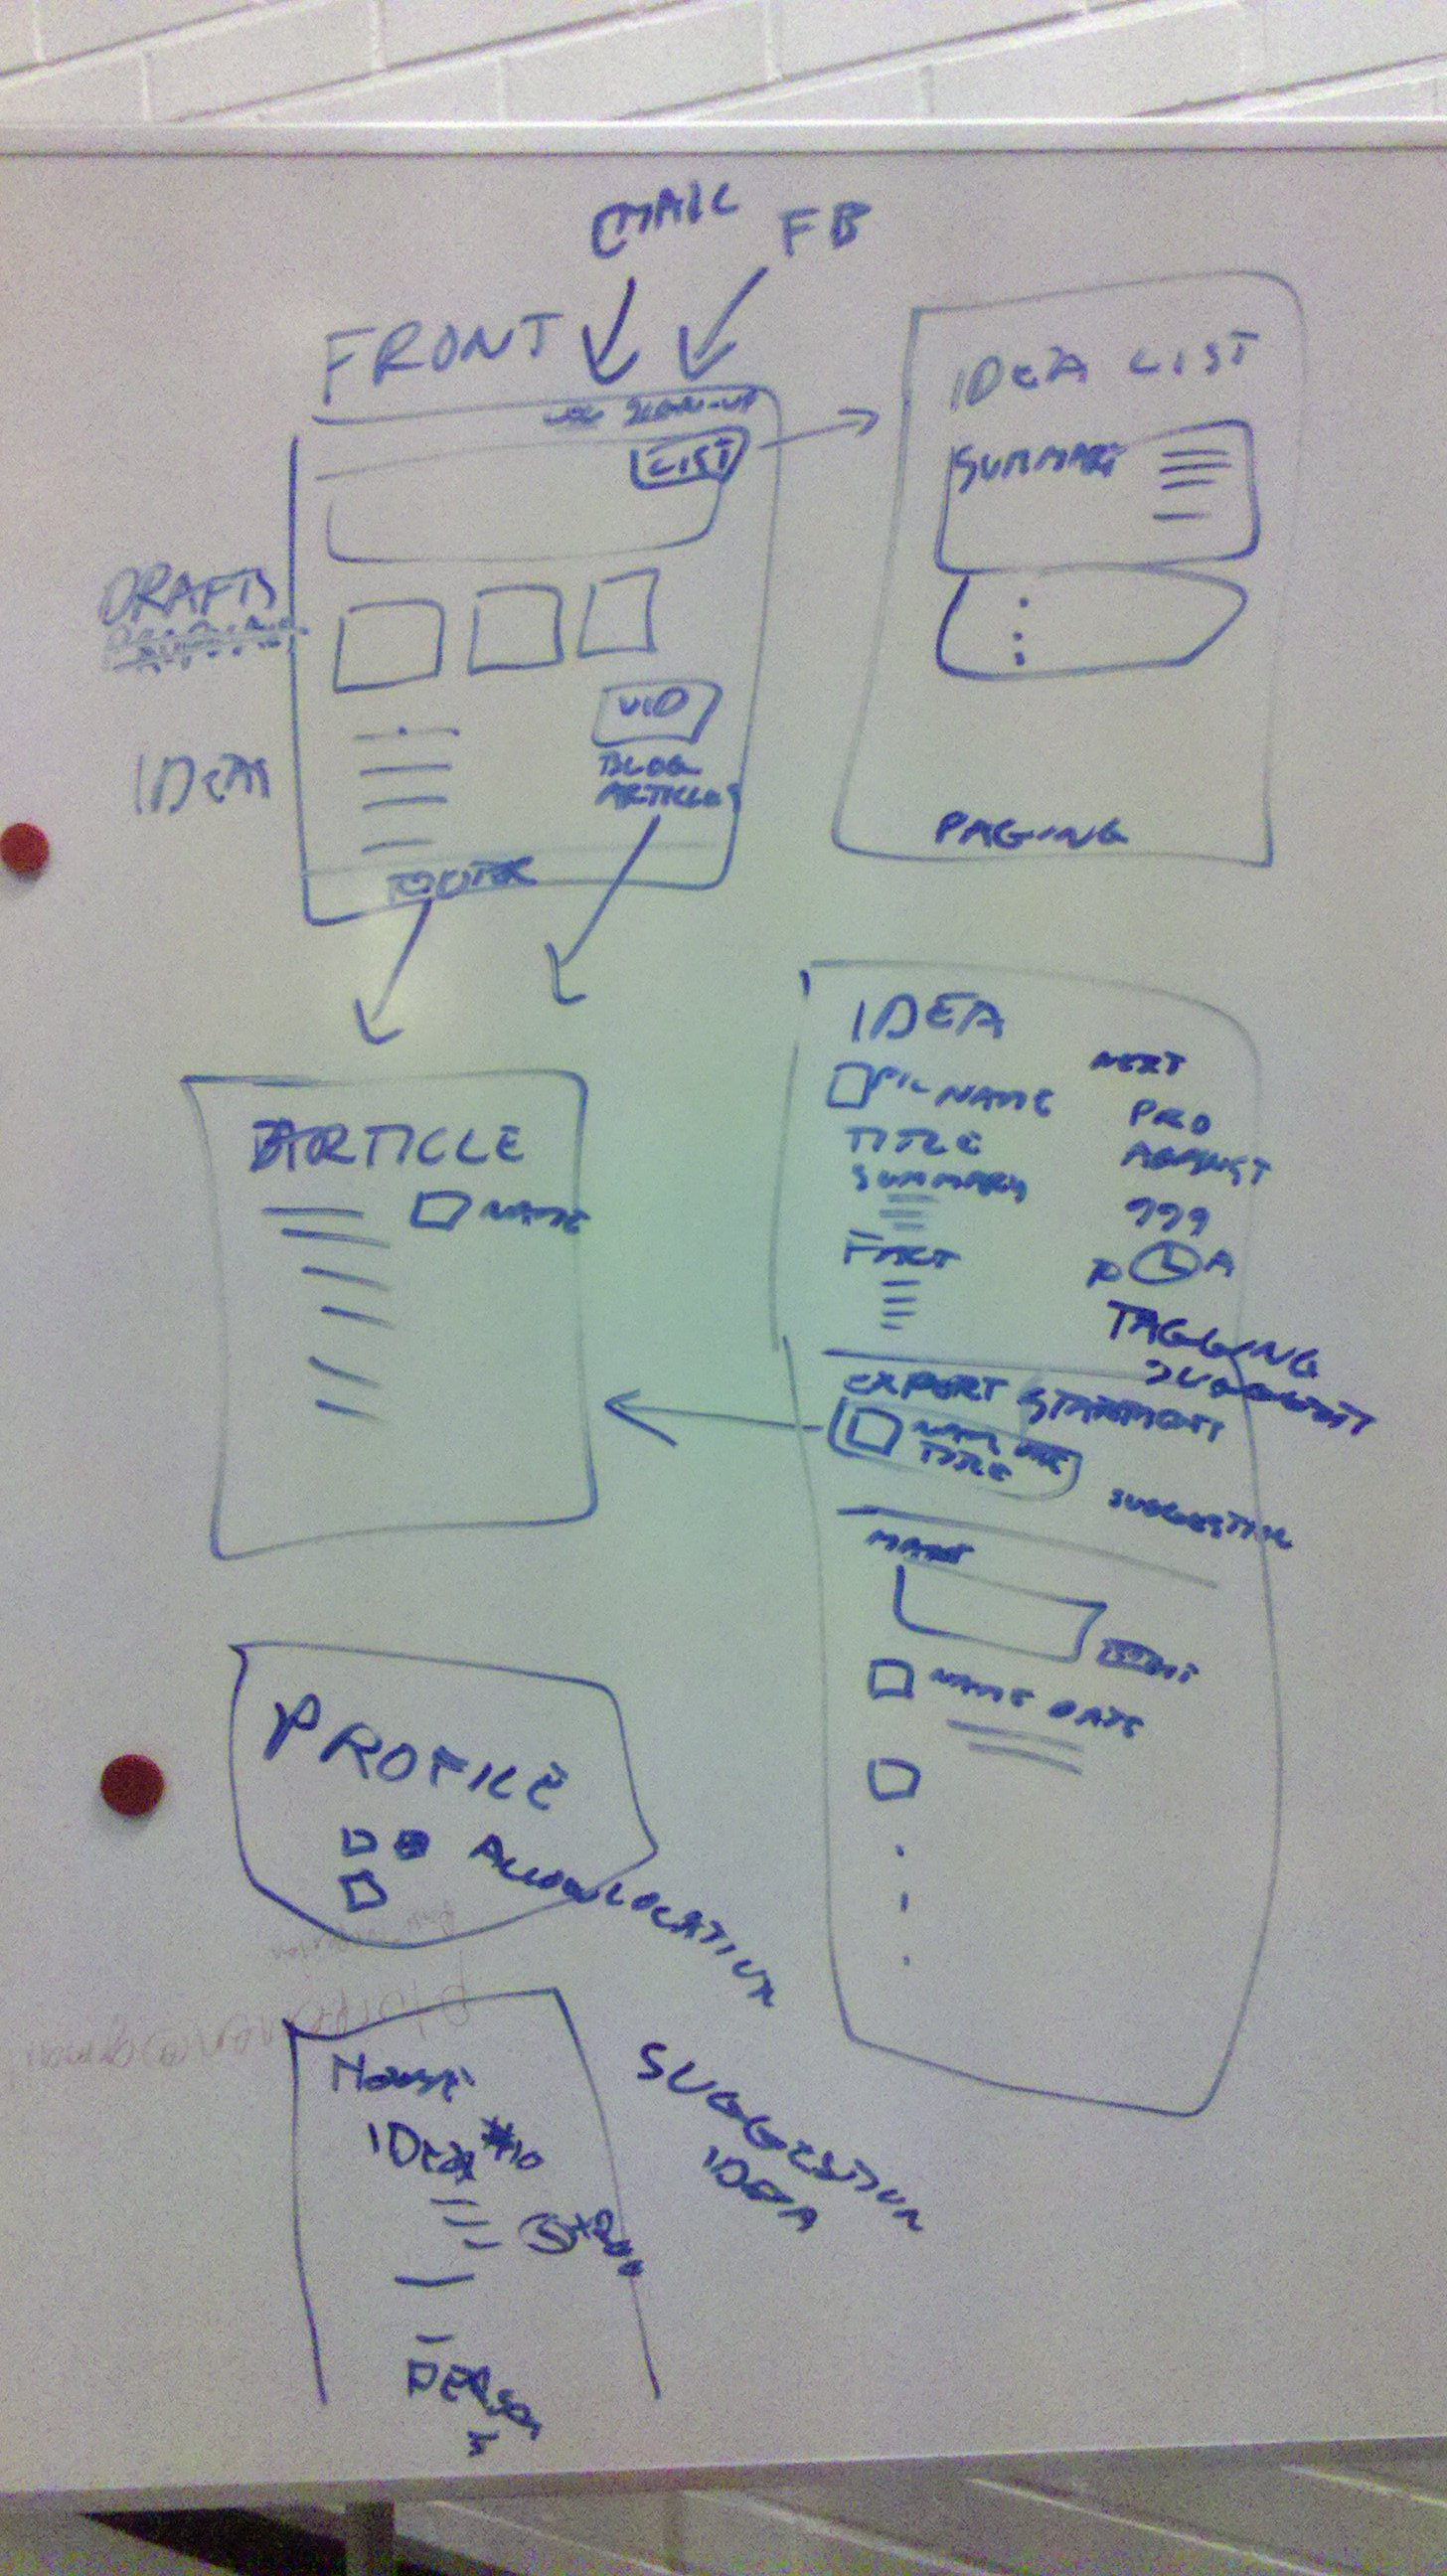 EMAIL FB
FRONT
SIGN-UP
LIST
DRAFTS
IDEAS
VID
BLOG
ARTICLES
FOOTER
IDEA LIST
SUMMARY
PAGING
ARTICLE
NAME
IDEA
PIC NAME
TITLE
SUMMARY
FACT
NEXT
PRO
AGAINST
???
P A
TAGGING
SUGGEST
EXPERT STATEMENT
NAME
TITLE
SUGGESTION
NAME DATE
PROFILE
ALLOW LOCATION
IDEA #10
PERSON
5
SUGGESTION
IDEA